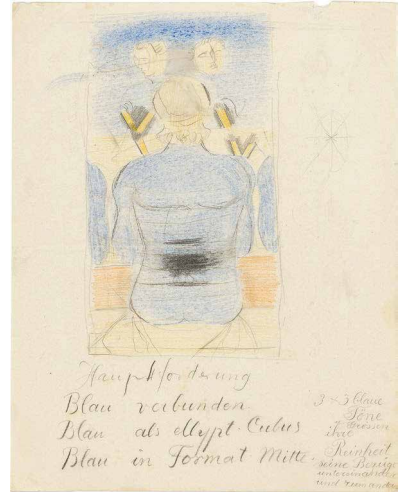 Hauptforderung
Blau verbunden
Blau als ellypt. Cubus
Blau in Format Mitte.
blaue
Töne
ihre
Reinheit
seine Bezüge
untereinander
und zueinander